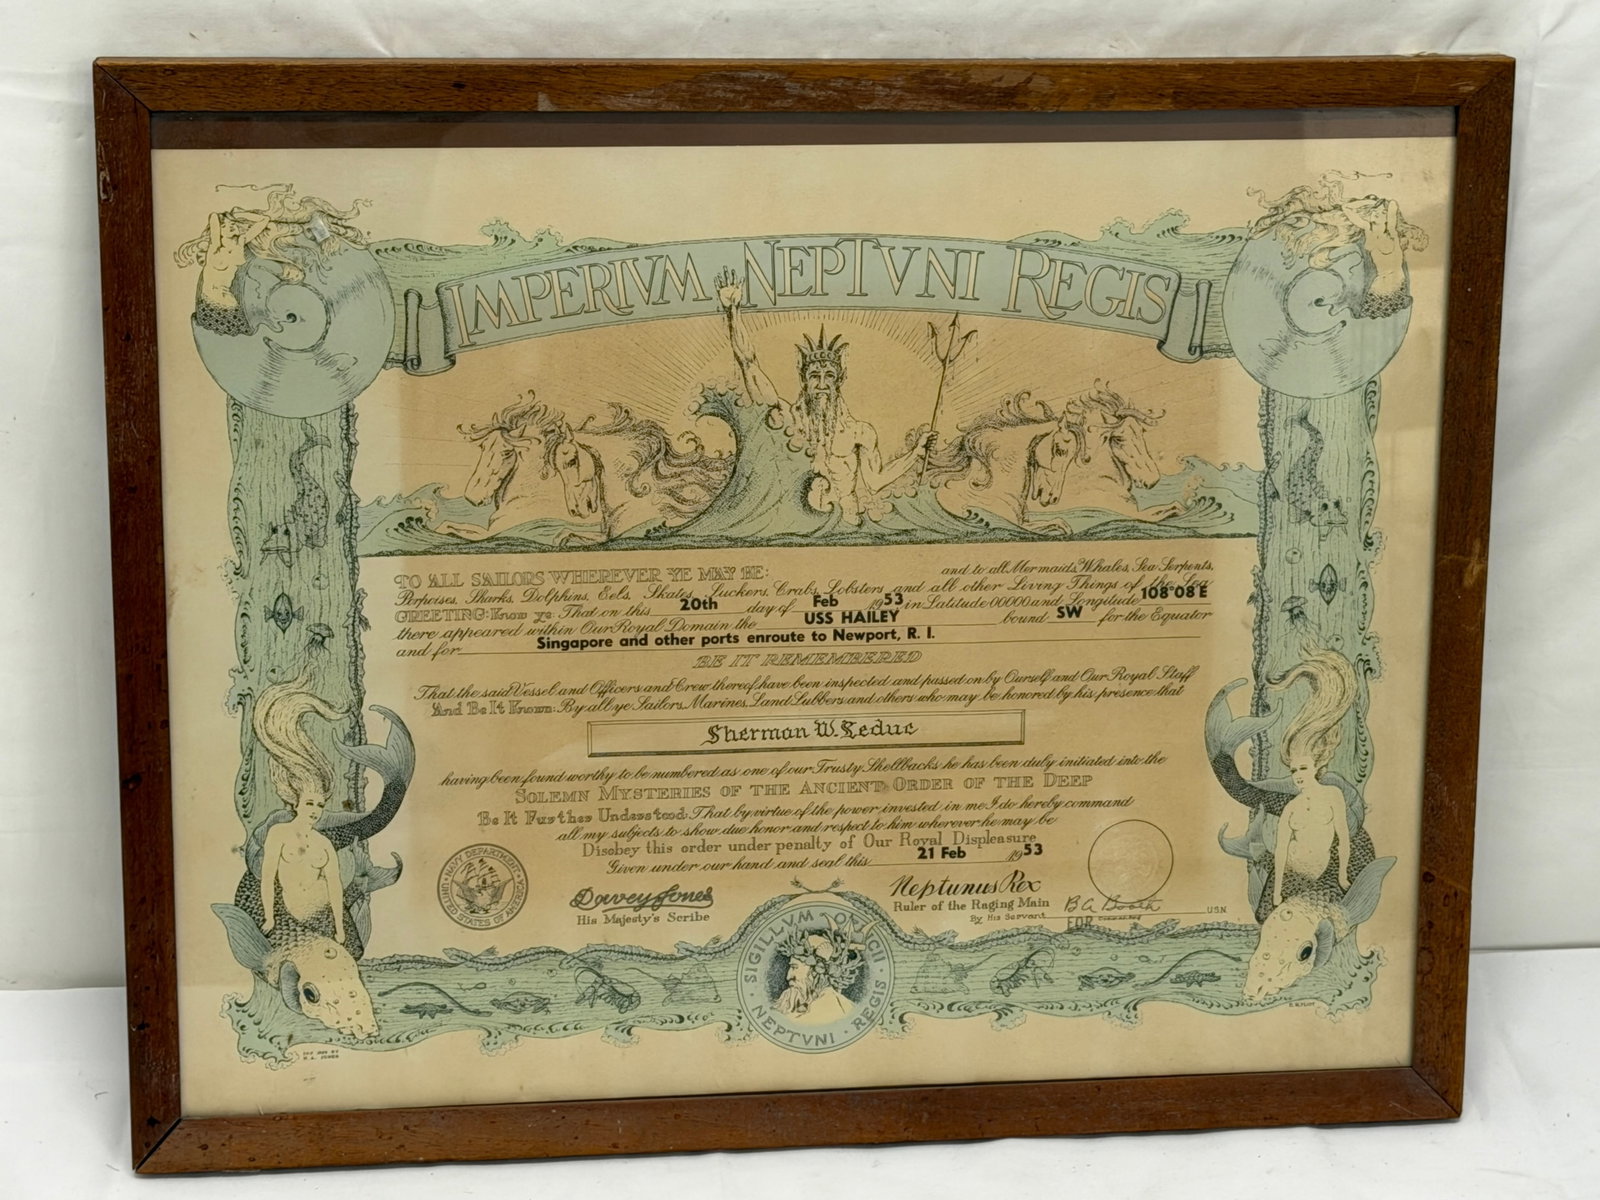 IMPERIVM NEPTVNI REGIS
TO ALL SAILORS WHEREVER YE MAY BE: and to all Mermaids, Whales, Sea Serpents,
Porpoises, Sharks, Dolphins, Eels, Skates, Suckers, Crabs, Lobsters and all other Living Things of the Sea
GREETING: Know ye: That on this 20th day of Feb 1953 in Latitude 00000 and Longitude 108°08'E
there appeared within Our Royal Domain the USS HAILEY bound SW for the Equator
and for Singapore and other ports enroute to Newport, R. I.
BE IT REMEMBERED
That the said Vessel and Officers and Crew thereof have been inspected and passed on by Ourself and Our Royal Staff
And Be It Known: By all ye Sailors, Marines, Land Lubbers and others who may be honored by his presence that
Sherman W. Leduc
having been found worthy to be numbered as one of our Trusty Shellbacks he has been duly initiated into the
SOLEMN MYSTERIES OF THE ANCIENT ORDER OF THE DEEP
Be It Further Understood: That by virtue of the power invested in me I do hereby command
all my subjects to show due honor and respect to him wherever he may be
Disobey this order under penalty of Our Royal Displeasure
Given under our hand and seal this 21 Feb 1953
NAVY DEPARTMENT
UNITED STATES OF AMERICA
Davey Jones
His Majesty's Scribe
Neptunus Rex
Ruler of the Raging Main
By His Servant
USN
FOR
SIGILLVM
NEPTVNI · REGIS